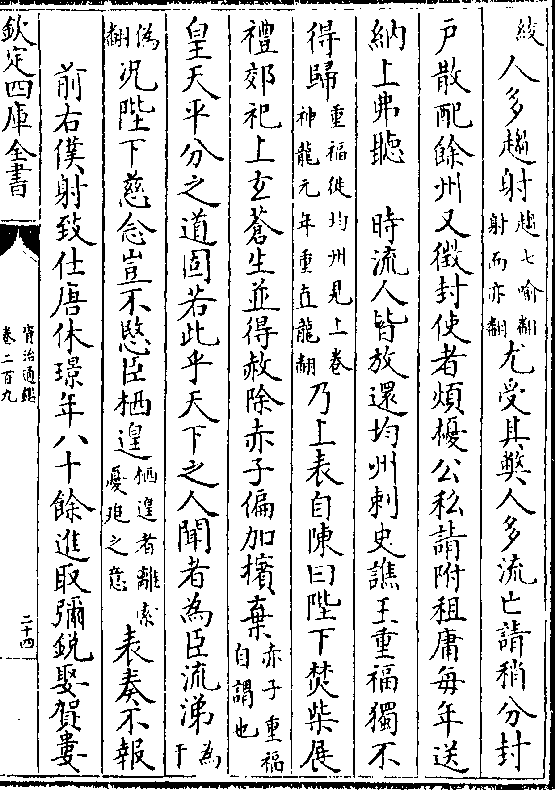 綾人多趨射趨七喻翻射而亦翻尤受其弊人多流亡請稍分封
戸散配餘州又徵封使者煩擾公私請附租庸每年送
納上弗聽　時流人皆放還均州刺史譙王重福獨不
得歸重福徙均州見上卷神龍元年重直龍翻乃上表自陳曰陛下焚柴展
禮郊祀上𤣥蒼生並得赦除赤子偏加擯棄赤子重福自謂也
皇天平分之道固若此乎天下之人聞者為臣流涕為于
偽翻况陛下慈念豈不愍臣栖遑栖遑者離索憂廹之意表奏不報
前右僕射致仕唐休璟年八十餘進取彌鋭娶賀婁
欽定四庫全書
資治通鑑
卷二百九
二十四